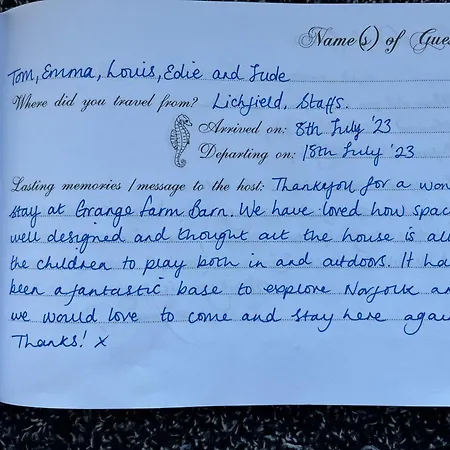 Name(s) of Gues
Tom, Emma, Louis, Edie and Jude
Where did you travel from? Lichfield, Staffs.
Arrived on: 8th July '23
Departing on: 18th July '23
Lasting memories / message to the host: Thankyou for a won
stay at Grange Farm Barn. We have loved how spac
well designed and thought out the house is all
the children to play both in and outdoors. It ha
been a fantastic base to explore Norfolk an
we would love to come and stay here again
Thanks! x